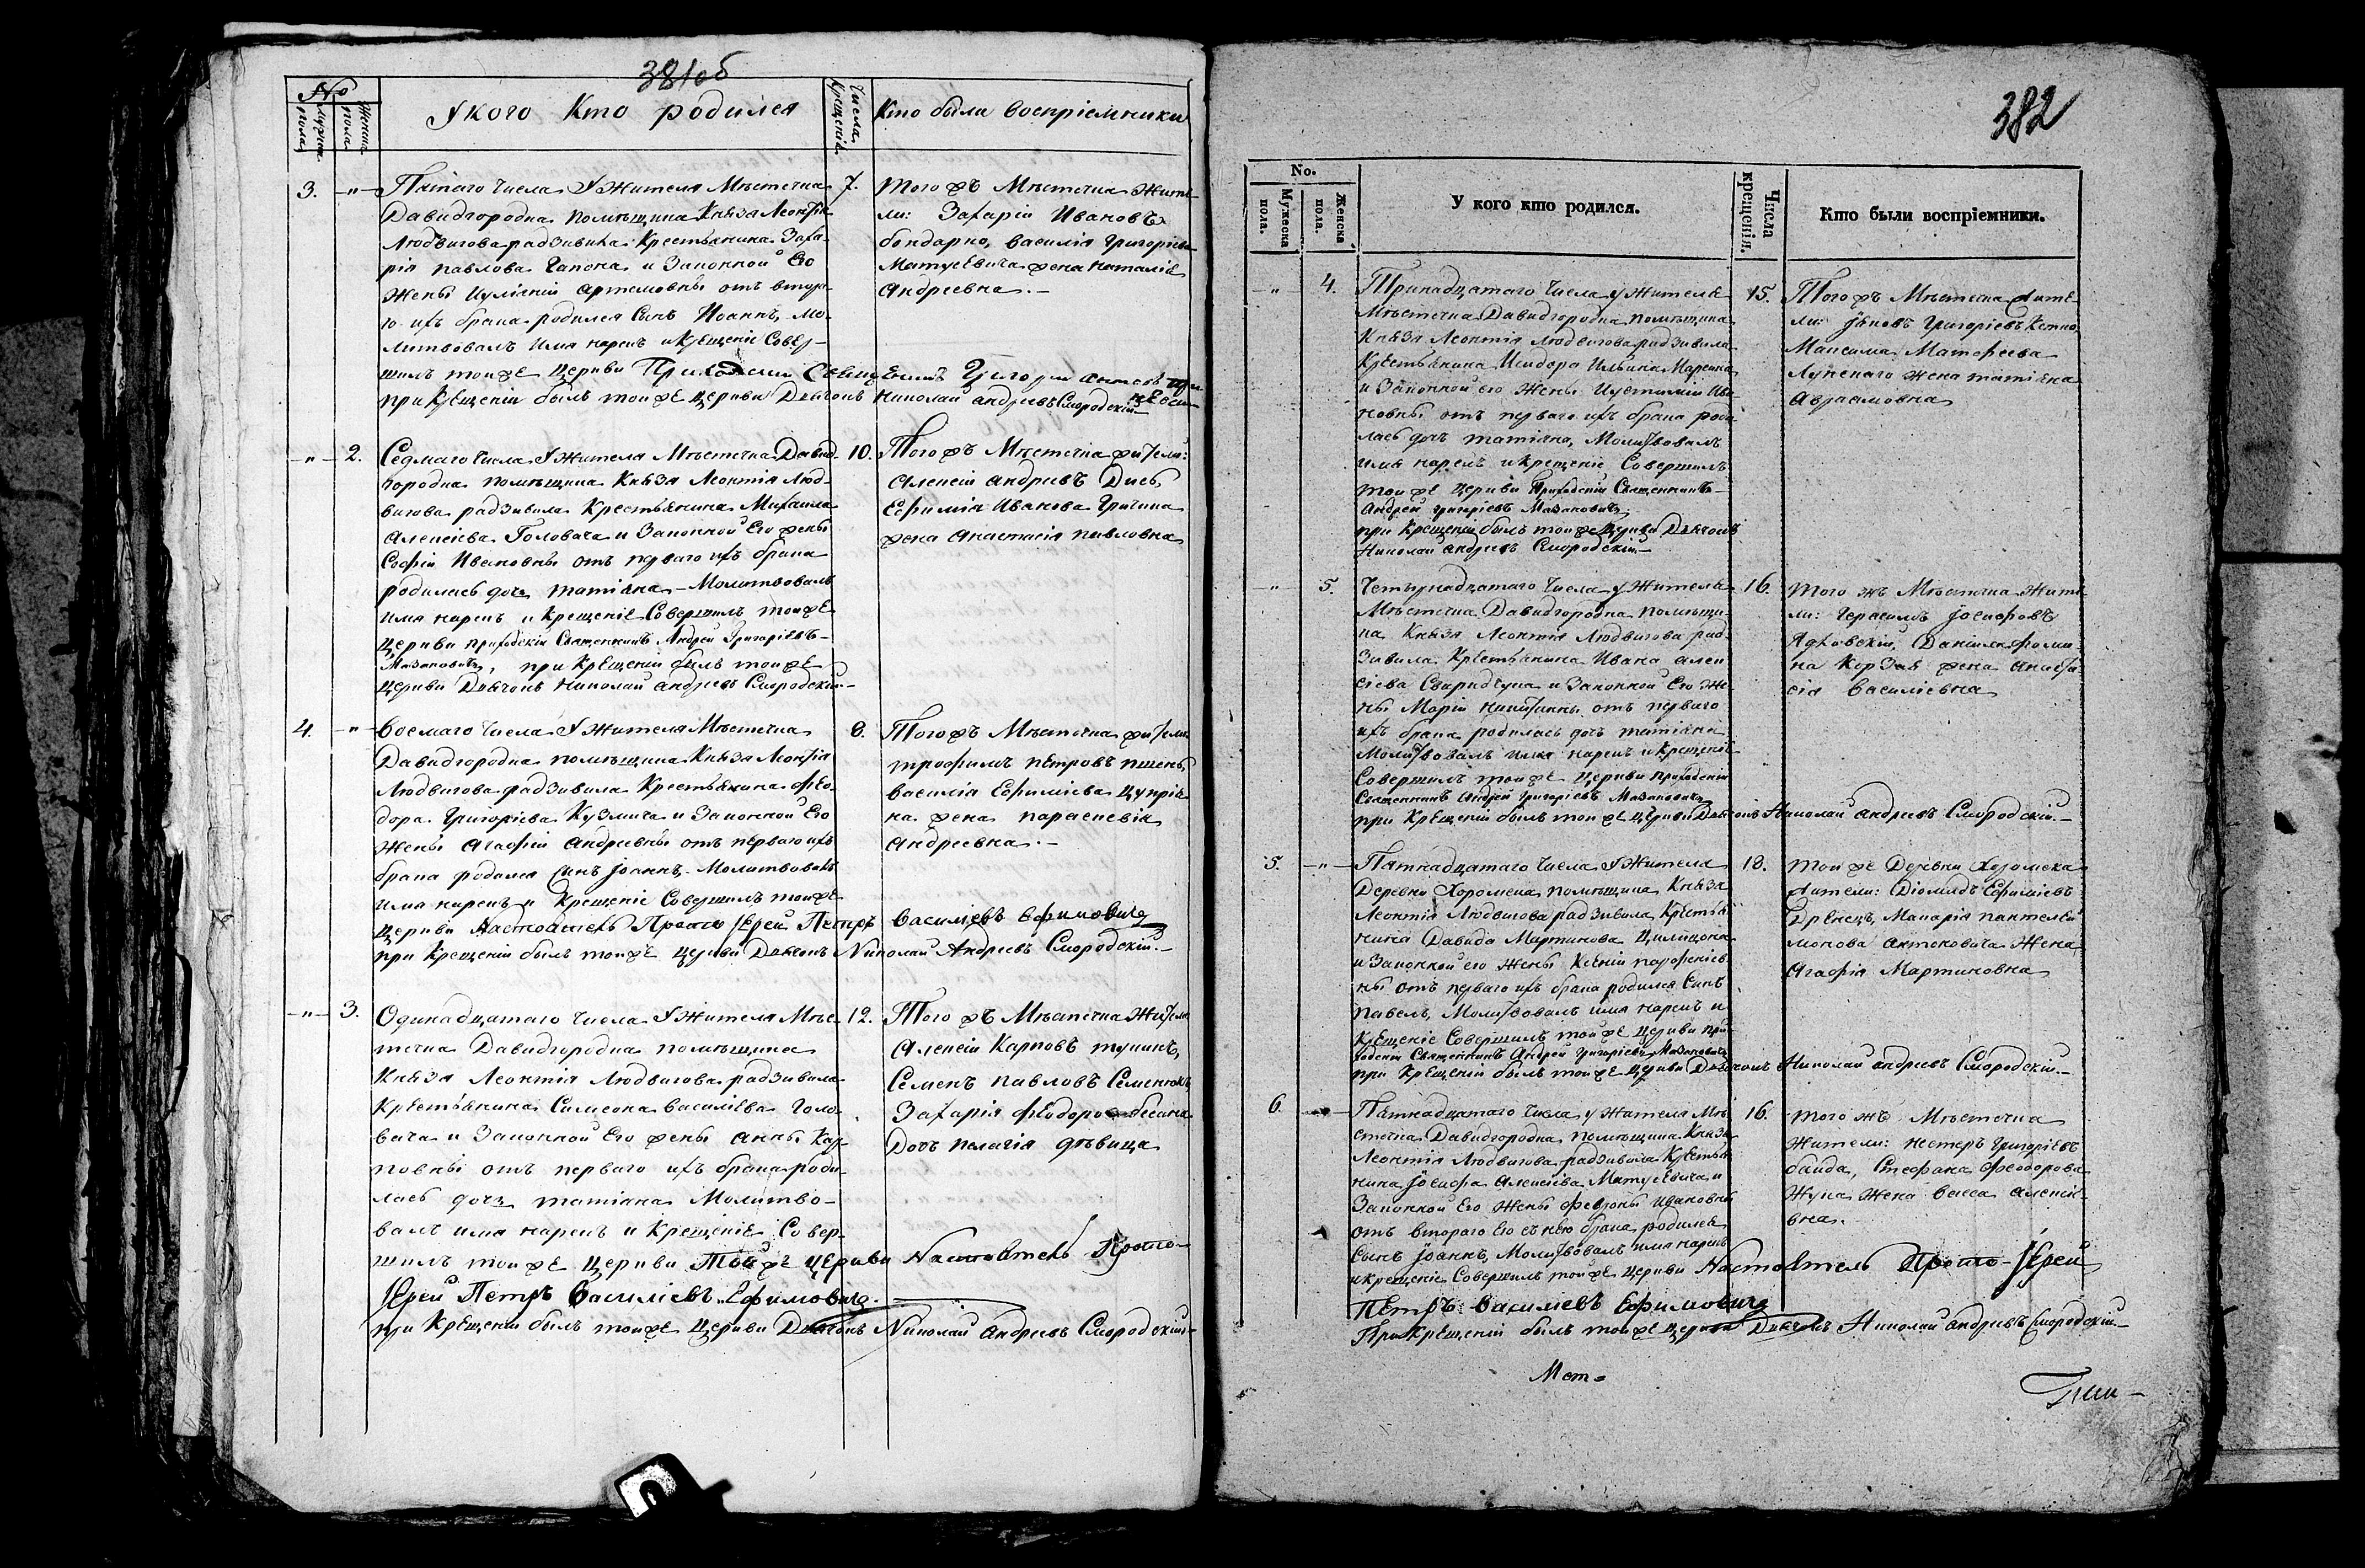 381об
№
Мужеска пола
Женска пола
У кого Кто родился
Числа Крещенія
Кто были воспріемники
3.
Пятаго Числа У Жителя Мѣстечка
Давидгородка помѣщика Князя Леонтія
Людвигова радзивила Крестьянина Заха-
рія павлова Гапона и Законной Его
Жены Иуліяніи артемовны отъ втора-
го ихъ брака родился Сынъ Иоаннъ, Мо-
литвовалъ Имя нарекъ и Крещеніе Совер-
шилъ той же Церкви Приходскій Священникъ Григорій
при Крещеніи былъ той же Церкви Дьячокъ Николай андреевъ Смородскій
7.
того жъ Мѣстечка Жите-
ли: Захарій Ивановъ
бондарко, василія Григоріева
Матусевича жена наталія
андреевна.
2.
Седмаго Числа У Жителя Мѣстечка Давид-
городка помѣщика Князя Леонтія Люд-
вигова радзивила Крестьянина Михаила
алексѣева Головача и Законной Его жены
Софіи Ивановны отъ перваго ихъ брака
родилась дочь татіяна Молитвовалъ
имя нарекъ и Крещеніе Совершилъ той же
Церкви приходскій Священникъ Андрей Григоріевъ
Мазановичъ, при Крещеніи былъ той же
Церкви Дьячокъ николай андреевъ Смородскій
10.
Того жъ Мѣстечка жители:
алексій андреевъ
Ефимія Иванова Гричина
жена анастасія павловна
4.
восмаго Числа У Жителя Мѣстечка
Давидгородка помѣщика Князя Леонтія
Людвигова радзивила Крестьянина Фео-
дора Григоріева Кузмича и Законной Его
Жены агафіи андреевны отъ перваго ихъ
брака родился сынъ Іоаннъ Молитвовалъ
имя нарекъ и Крещеніе Совершилъ той же
Церкви Настоятель Прото Іерей Петръ василіевъ Ефимовичъ
при Крещеніи былъ той же Церкви Дьячокъ Николай Андреевъ Смородскій.
8.
Того жъ Мѣстечка жители
трофимъ петровъ пшень,
василія Ефиміева Цупрія-
ка жена параскевія
андреевна.
3.
Одинадцатаго Числа У Жителя Мѣс-
течка Давидгородка помѣщика
Князя Леонтія Людвигова радзивила
Крестьянина Симеона василіева Голо-
вача и Законной Его жены анны Кар-
повны отъ перваго ихъ брака роди-
лась дочь татіяна Молитво-
валъ имя нарекъ и Крещеніе Совер-
шилъ той же Церкви Той же Церкви Настоятель Прото-
Іерей Петръ Василіевъ Ефимовичъ.
при Крещеніи былъ той же Церкви Дьячокъ Николай андреевъ Смородскій
12.
Того жъ Мѣстечка Жители
алексій Карповъ тупикъ,
Семенъ павловъ Семенюкъ,
Захарія феодоров
Дочь пелагія дѣвица
382
No.
Мужеска пола.
Женска пола.
У кого кто родился.
Числа крещенія.
Кто были воспріемники.
4.
Тринадцатаго Числа у Жителя
Мѣстечка Давидгородка помѣщика
Князя Леонтія Людвигова радзивила
Крестьянина Исидора Ильина
и Законной его Жены Иустиніи Ива-
новны отъ перваго ихъ брака роди-
лась дочь татіяна, Молитвовалъ
имя нарекъ и Крещеніе Совершилъ
той же Церкви Приходскій Священникъ
Андрей григоріевъ Мазановичъ
при Крещеніи былъ той же Церкви Дьячокъ
Николай андреевъ Смородскій
15.
Того жъ Мѣстечка жите-
ли: Іяковъ Григоріевъ
Максима Матфеева
Лунскаго жена татіяна
авраамовна
5.
Четырнадцатаго Числа у Жителя
Мѣстечка Давидгородка помѣщи-
ка Князя Леонтія Людвигова рад-
зивила Крестьянина Ивана алек-
сіева Свиридчука и Законной Его Же-
ны Маріи никитины отъ перваго
ихъ брака родилась дочь татіяна
Молитвовалъ имя нарекъ и крещеніе
Совершилъ той же Церкви приходскій
Священникъ Андрей Григоріевъ Мазановичъ
при Крещеніи былъ той же Церкви Дьячокъ Николай андреевъ Смородскій.
16.
того жъ Мѣстечка Жите-
ли: Герасимъ Іосифовъ
Ядковскій, Даніила фоми-
на Коржа жена анаста-
сія василіевна
5.
Пятнадцатаго Числа У Жителя
Деревни Хоромска помѣщика Князя
Леонтія Людвигова радзивила Крестья-
нина Давида Мартинова
и Законной его Жены Ксеніи парфеніев-
ны отъ перваго ихъ брака родился Сынъ
павелъ, Молитвовалъ имя нарекъ и
Крещеніе Совершилъ той же Церкви при-
ходскій Священникъ Андрей Григоріевъ Мазановичъ
при Крещеніи былъ той же Церкви Дьячокъ Николай андреевъ Смородскій
18.
той же Деревни Хоромска
жители: Діомидъ Ефиміевъ
Макарія пантелей-
монова антоновича Жена
агафія Мартиновна
6.
Пятнадцатаго Числа у Жителя Мѣ-
стечка Давидгородка помѣщика Князя
Леонтія Людвигова радзивила Крестья-
нина Іосифа алексіева Матусевича и
Законной Его Жены февроны Ивановны
отъ втораго Его съ нею брака родился
Сынъ Іоаннъ, Молитвовалъ имя нарекъ
и крещеніе Совершилъ той же Церкви Настоятель Прото-Іерей
Петръ василіевъ Ефимовичъ
При Крещеніи былъ той же Церкви Дьячокъ Николай андреевъ Смородскій
16.
того жъ Мѣстечка
жители: нестеръ Григоріевъ
байда, Стефана феодорова
Жука Жена васса алексі-
вна.